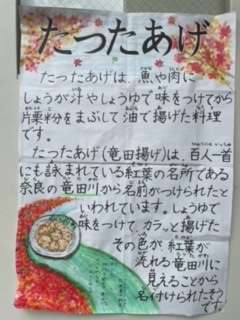 たったあげ
たったあげは、魚や肉に
しょうが汁やしょうゆで味をつけてから
片栗粉をまぶして油で揚げた料理
です。
たったあげ(竜田揚げ)は、百人一首
にも詠まれている紅葉の名所である
奈良の竜田川から名前がつけられたと
いわれています。しょうゆで
味をつけて、カラッと揚げた
その色が紅葉が
流れる竜田川に
見えることから
名付けられたそう
です。